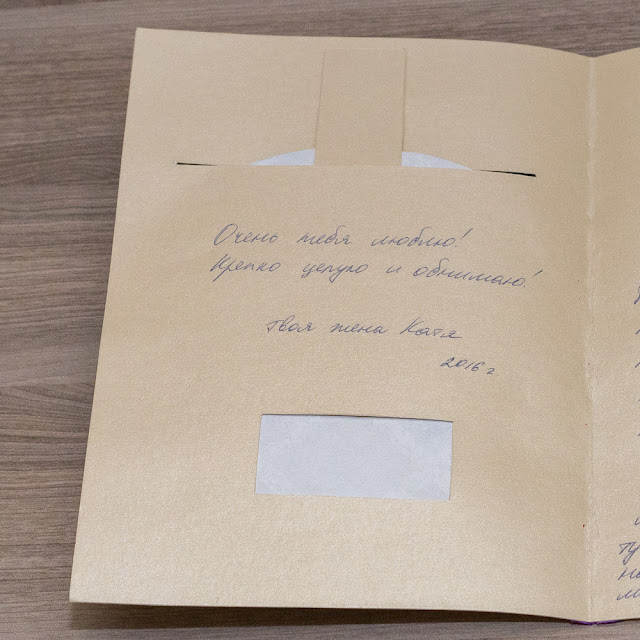 Очень тебя люблю!
Крепко целую и обнимаю!
твоя жена Катя
2016 г.
ту
не